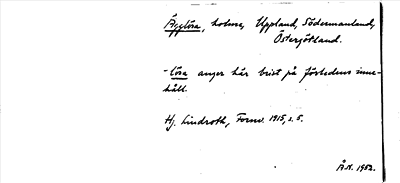 Ägglösa, holme, Uppland, Södermanland,
Östergötland.
-lösa anger här brist på förledens inne-
håll.
Hj. Lindroth, Fornv. 1915, s. 5.
Å.N. 1952.